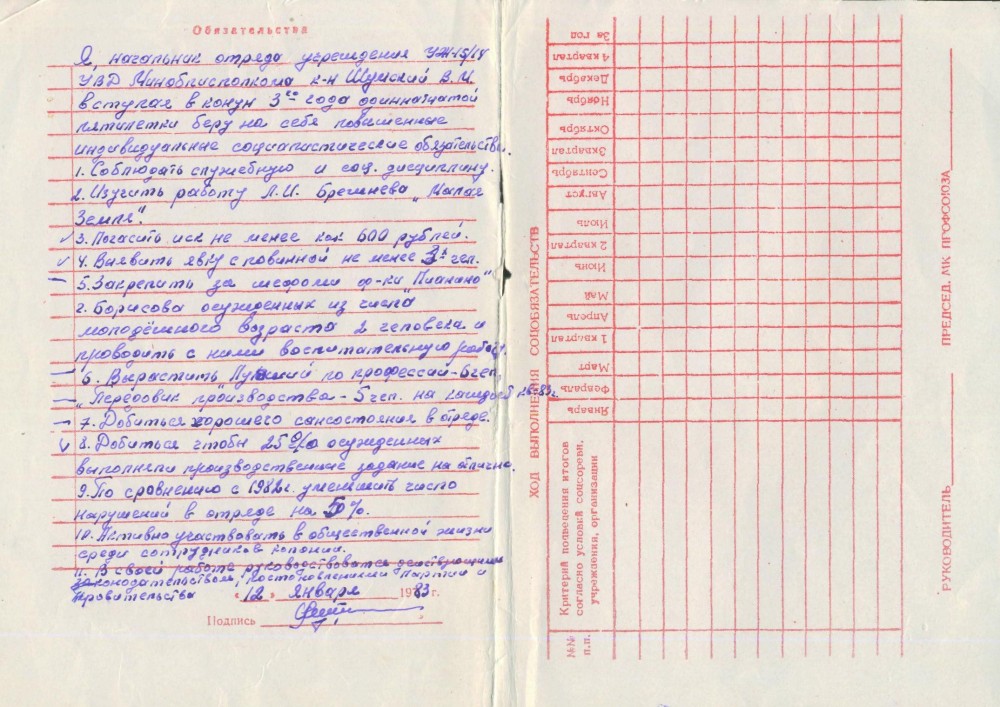 Обязательства
Я, начальник отряда учреждения УЖ-15/14
УВД Миноблисполкома к-н Шумский В.М.
вступая в канун 3го года одиннадцатой
пятилетки беру на себя повышенные
индивидуальные социалистические обязательства.
1. Соблюдать служебную и соц. дисциплину.
2. Изучить работу Л.И. Брежнева „Малая
Земля".
3. Погасить иск не менее как 600 рублей.
4. Выявить явку с повинной не менее 3х чел.
5. Закрепить за шефами ф-ки Пианино"
г. Борисова осужденных из числа
молодёжного возраста 2 человека и
проводить с ними воспитательную работу.
6. Вырастить „Лучший по профессий-6чел.
„Передовик производства - 5 чел. на каждый кв-83г.
7. Добиться хорошего сансостояния в отряде.
8. Добиться чтобы 25% осужденных
выполняли производственные задание на отлично.
9. По сравнению с 1982г. уменшить число
нарушений в отряде на 50%.
10. Активно участвовать в общественной жизни
среди сотрудников колонии.
11. В своей работе руководствоватся действующим
законодательством, Постановлениями Партии и
Правительства
„12" Января 1983г.
Подпись
ХОД ВЫПОЛНЕНИЯ СОЦОБЯЗАТЕЛЬСТВ
№№
п.п.
Критерий подведения итогов
согласно условий соцсоревн.
учреждения, организации
Январь
Февраль
Март
1 квартал
Апрель
Май
Июнь
2 квартал
Июль
Август
Сентябрь
3квартал
Октябрь
Ноябрь
Декабрь
4 квартал
За год
РУКОВОДИТЕЛЬ
ПРЕДСЕД. МК ПРОФСОЮЗА